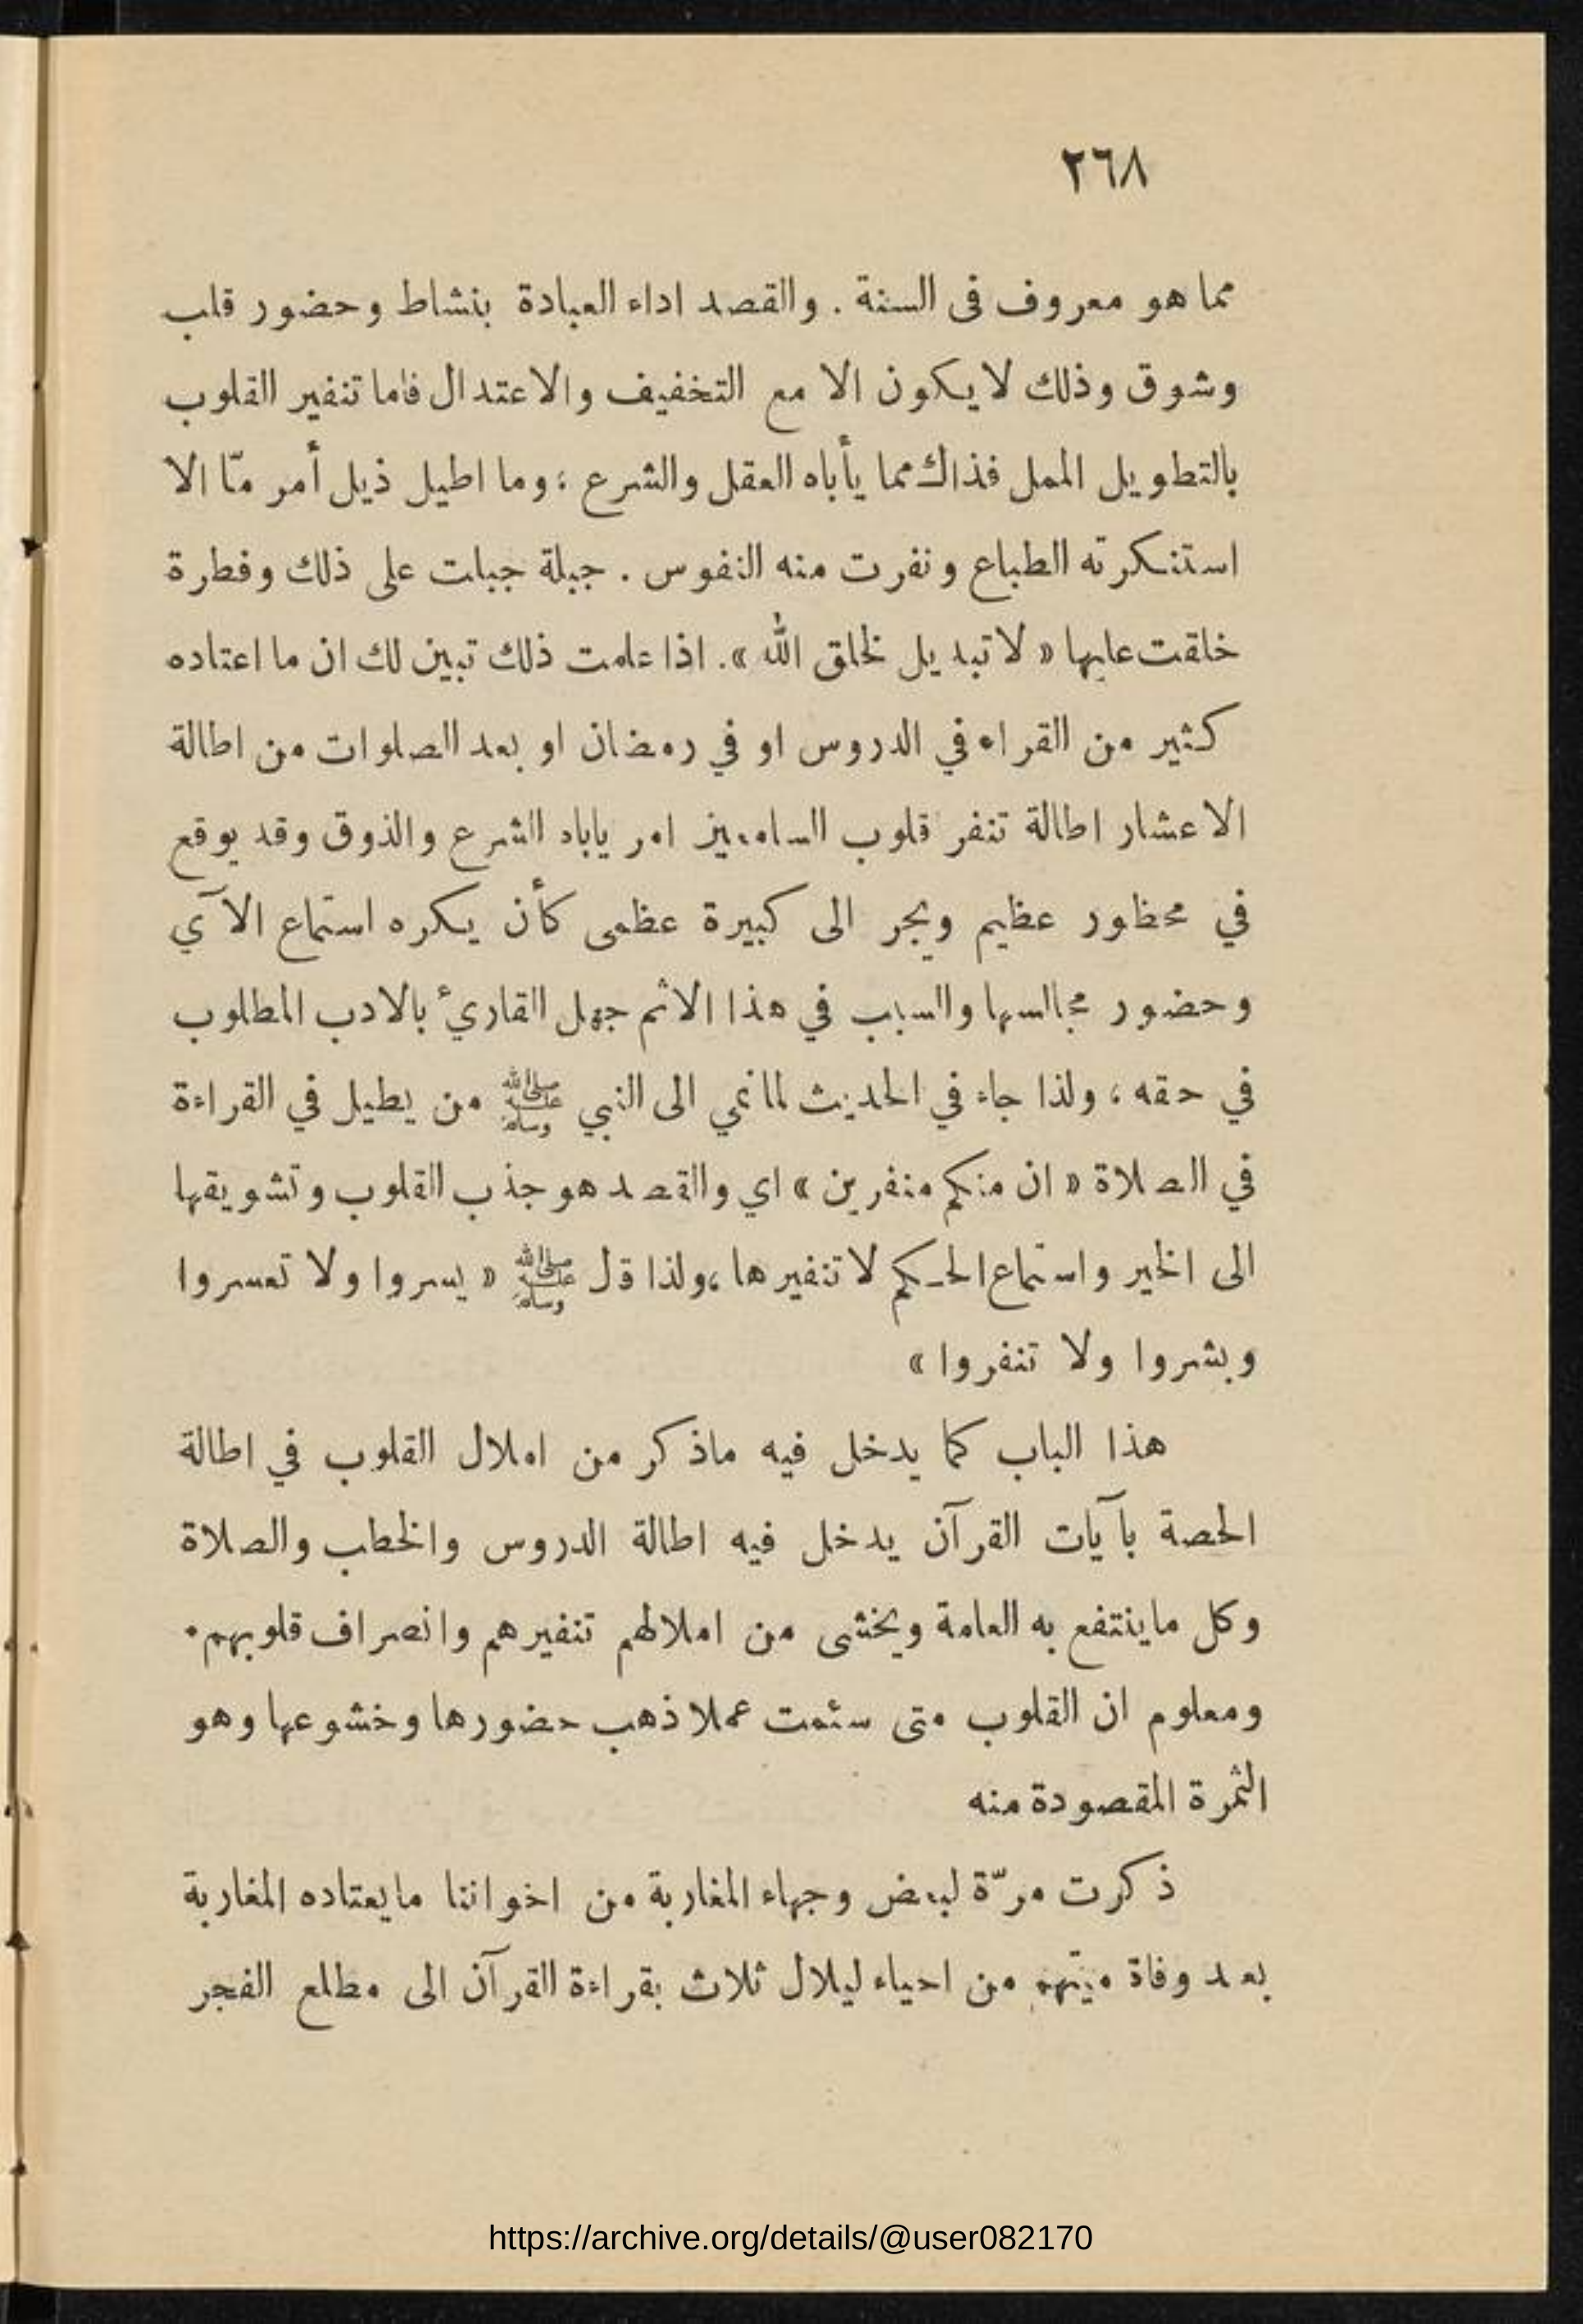 ٢٦٨
مما هو معروف فى السنة . والقصد اداء العبادة بنشاط وحضور قلب
وشوق وذلك لا يكون الا مع التخفيف والاعتدال فاما تنفير القلوب
بالتطويل الممل فذاك مما يأباه العقل والشرع ؛ وما اطيل ذيل أمر مّا الا
استنكرته الطباع ونفرت منه النفوس . جبلة جبلت على ذلك وفطرة
خلقت عليها « لا تبديل لخلق الله ». اذا علمت ذلك تبين لك ان ما اعتاده
كثير من القراء في الدروس او في رمضان او بعد الصلوات من اطالة
الاعشار اطالة تنفر قلوب السامعين امر ياباه الشرع والذوق وقد يوقع
في محظور عظيم ويجر الى كبيرة عظمى كأن يكره استماع الآي
وحضور مجالسها والسبب في هذا الاثم جهل القارئ بالادب المطلوب
في حقه ؛ ولذا جاء في الحديث لما نمي الى النبي ﷺ من يطيل في القراءة
في الصلاة « ان منكم منفرين » اي والقصد هو جذب القلوب وتشويقها
الى الخير واستماع الحكم لا تنفيرها ، ولذا قل ﷺ « يسروا ولا تعسروا
وبشروا ولا تنفروا »
هذا الباب كما يدخل فيه ماذكر من املال القلوب في اطالة
الحصة بآيات القرآن يدخل فيه اطالة الدروس والخطب والصلاة
وكل ماينتفع به العامة ويخشى من املالهم تنفيرهم وانصراف قلوبهم .
ومعلوم ان القلوب متى سئمت عملا ذهب حضورها وخشوعها وهو
الثمرة المقصودة منه
ذكرت مرّة لبعض وجهاء المغاربة من اخواننا مايعتاده المغاربة
بعد وفاة ميتهم من احياء ليلال ثلاث بقراءة القرآن الى مطلع الفجر
https://archive.org/details/@user082170